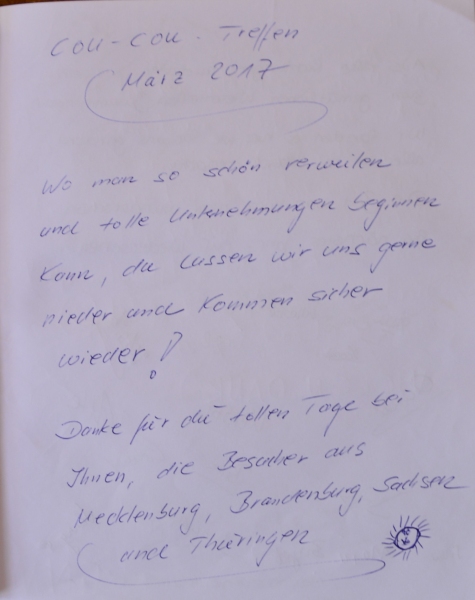 COU-COU-Treffen
März 2017
Wo man so schön verweilen
und tolle Unternehmungen beginnen
kann, da lassen wir uns gerne
nieder und kommen sicher
wieder!
Danke für die tollen Tage bei
Ihnen, die Besucher aus
Mecklenburg, Brandenburg, Sachsen
und Thüringen